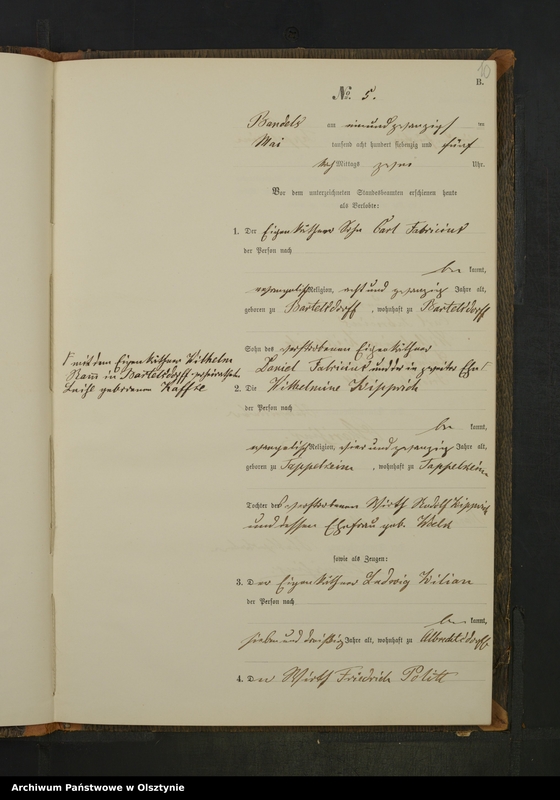 10
B.
№. 5.
Bandels am einundzwanzigsten
Mai tausend acht hundert siebenzig und fünf
Nach Mittags zwei Uhr.
Vor dem unterzeichneten Standesbeamten erschienen heute
als Verlobte:
1. Der Eigenkäthner Sohn Carl Fabricius
der Person nach
be kannt,
evangelisch Religion, acht und zwanzig Jahre alt,
geboren zu Bartelsdorff, wohnhaft zu Bartelsdorff
Sohn des verstorbenen Eigenkäthner
Daniel Fabricius und der in zweiter Ehe
mit dem Eigenkäthner Wilhelm
in Bartelsdorff verheirathete
geborenen
2. Die Wilhelmine Kippnich
der Person nach
be kannt,
evangelisch Religion, vier und zwanzig Jahre alt,
geboren zu Tappelkeim, wohnhaft zu Tappelkeim
Tochter des verstorbenen Wirth Rudolf
und dessen Ehefrau geb.
sowie als Zeugen:
3. Der Eigenkäthner Ludwig Kilian
der Person nach
be kannt,
sieben und dreißig Jahre alt, wohnhaft zu Albrechtsdorff
4. Der Wirth Friedrich Politt
Archiwum Państwowe w Olsztynie